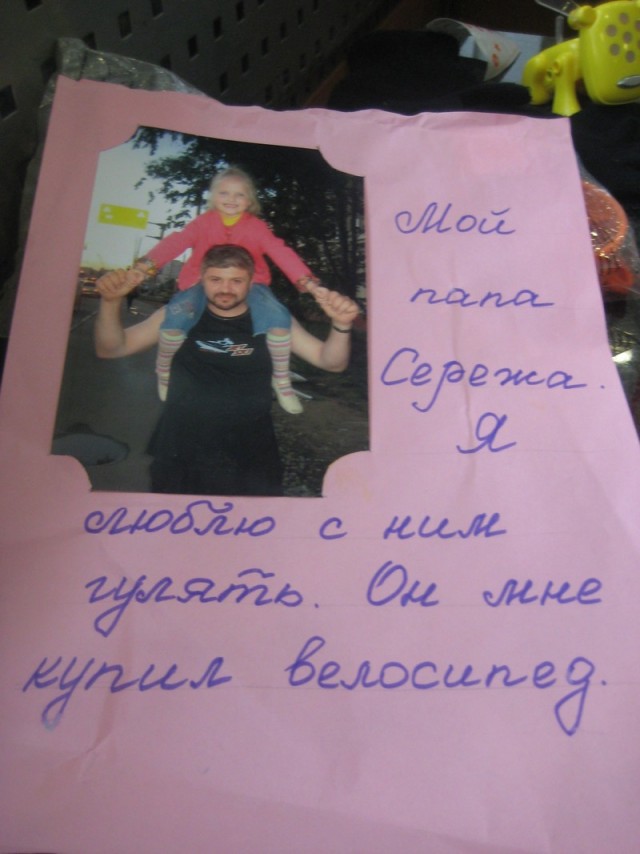 Мой
папа
Сережа.
Я
люблю с ним
гулять. Он мне
купил велосипед.